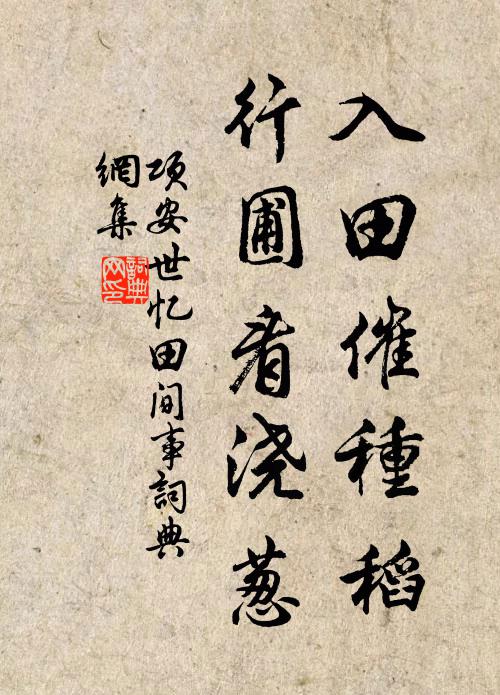 入田催種稻
行圃看浇葱
項安世忆田间事詞典
網集
詞典
网印